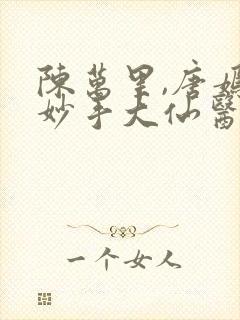 陳萬里,唐嫣
妙手大仙醫
一个女人